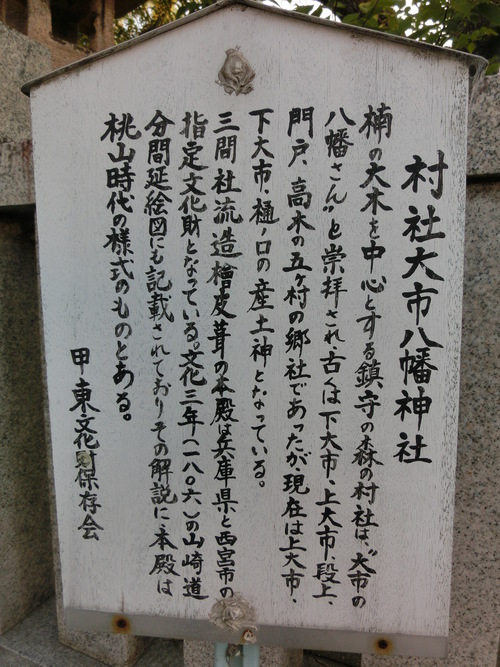 村社大市八幡神社
楠の大木を中心とする鎮守の森の村社は、〝大市の
八幡さん〟と崇拝され古くは下大市、上大市、段上、
門戸、高木の五ヶ村の郷社であったが、現在は上大市、
下大市、樋ノ口の産土神となっている。
三間社流造檜皮葺の本殿は兵庫県と西宮市の
指定文化財となっている。文化三年(一八〇六)の山崎道
分間延絵図にも記載されておりその解説に、本殿は
桃山時代の様式のものとある。
甲東文化財保存会